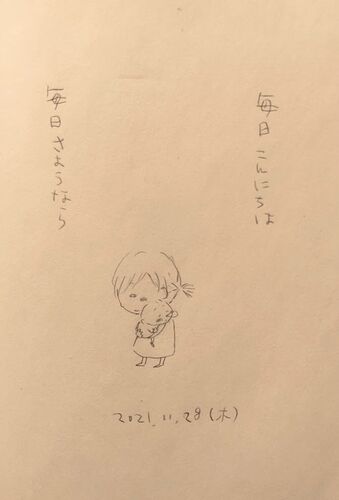 毎日こんにちは
毎日さようなら
2021.11.28(木)